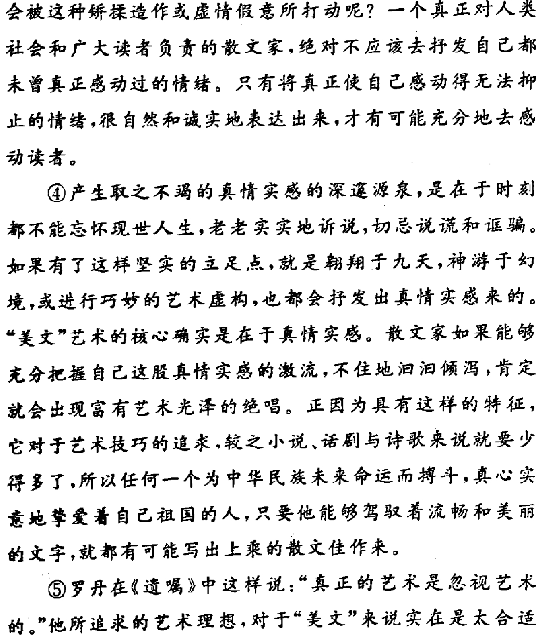 会被这种矫揉造作或虚情假意所打动呢？一个真正对人类
社会和广大读者负责的散文家，绝对不应该去抒发自己都
未曾真正感动过的情绪。只有将真正使自己感动得无法抑
止的情绪，很自然和诚实地表达出来，才有可能充分地去感
动读者。
④产生取之不竭的真情实感的深邃源泉，是在于时刻
都不能忘怀现世人生，老老实实地诉说，切忌说谎和诓骗。
如果有了这样坚实的立足点，就是翱翔于九天，神游于幻
境，或进行巧妙的艺术虚构，也都会抒发出真情实感来的。
“美文”艺术的核心确实是在于真情实感。散文家如果能够
充分把握自己这股真情实感的激流，不住地汩汩倾泻，肯定
就会出现富有艺术光泽的绝唱。正因为具有这样的特征，
它对于艺术技巧的追求，较之小说、话剧与诗歌来说就要少
得多了，所以任何一个为中华民族未来命运而搏斗，真心实
意地挚爱着自己祖国的人，只要他能够驾驭着流畅和美丽
的文字，就都有可能写出上乘的散文佳作来。
⑤罗丹在《遗嘱》中这样说：“真正的艺术是忽视艺术
的。”他所追求的艺术理想，对于“美文”来说实在是太合适